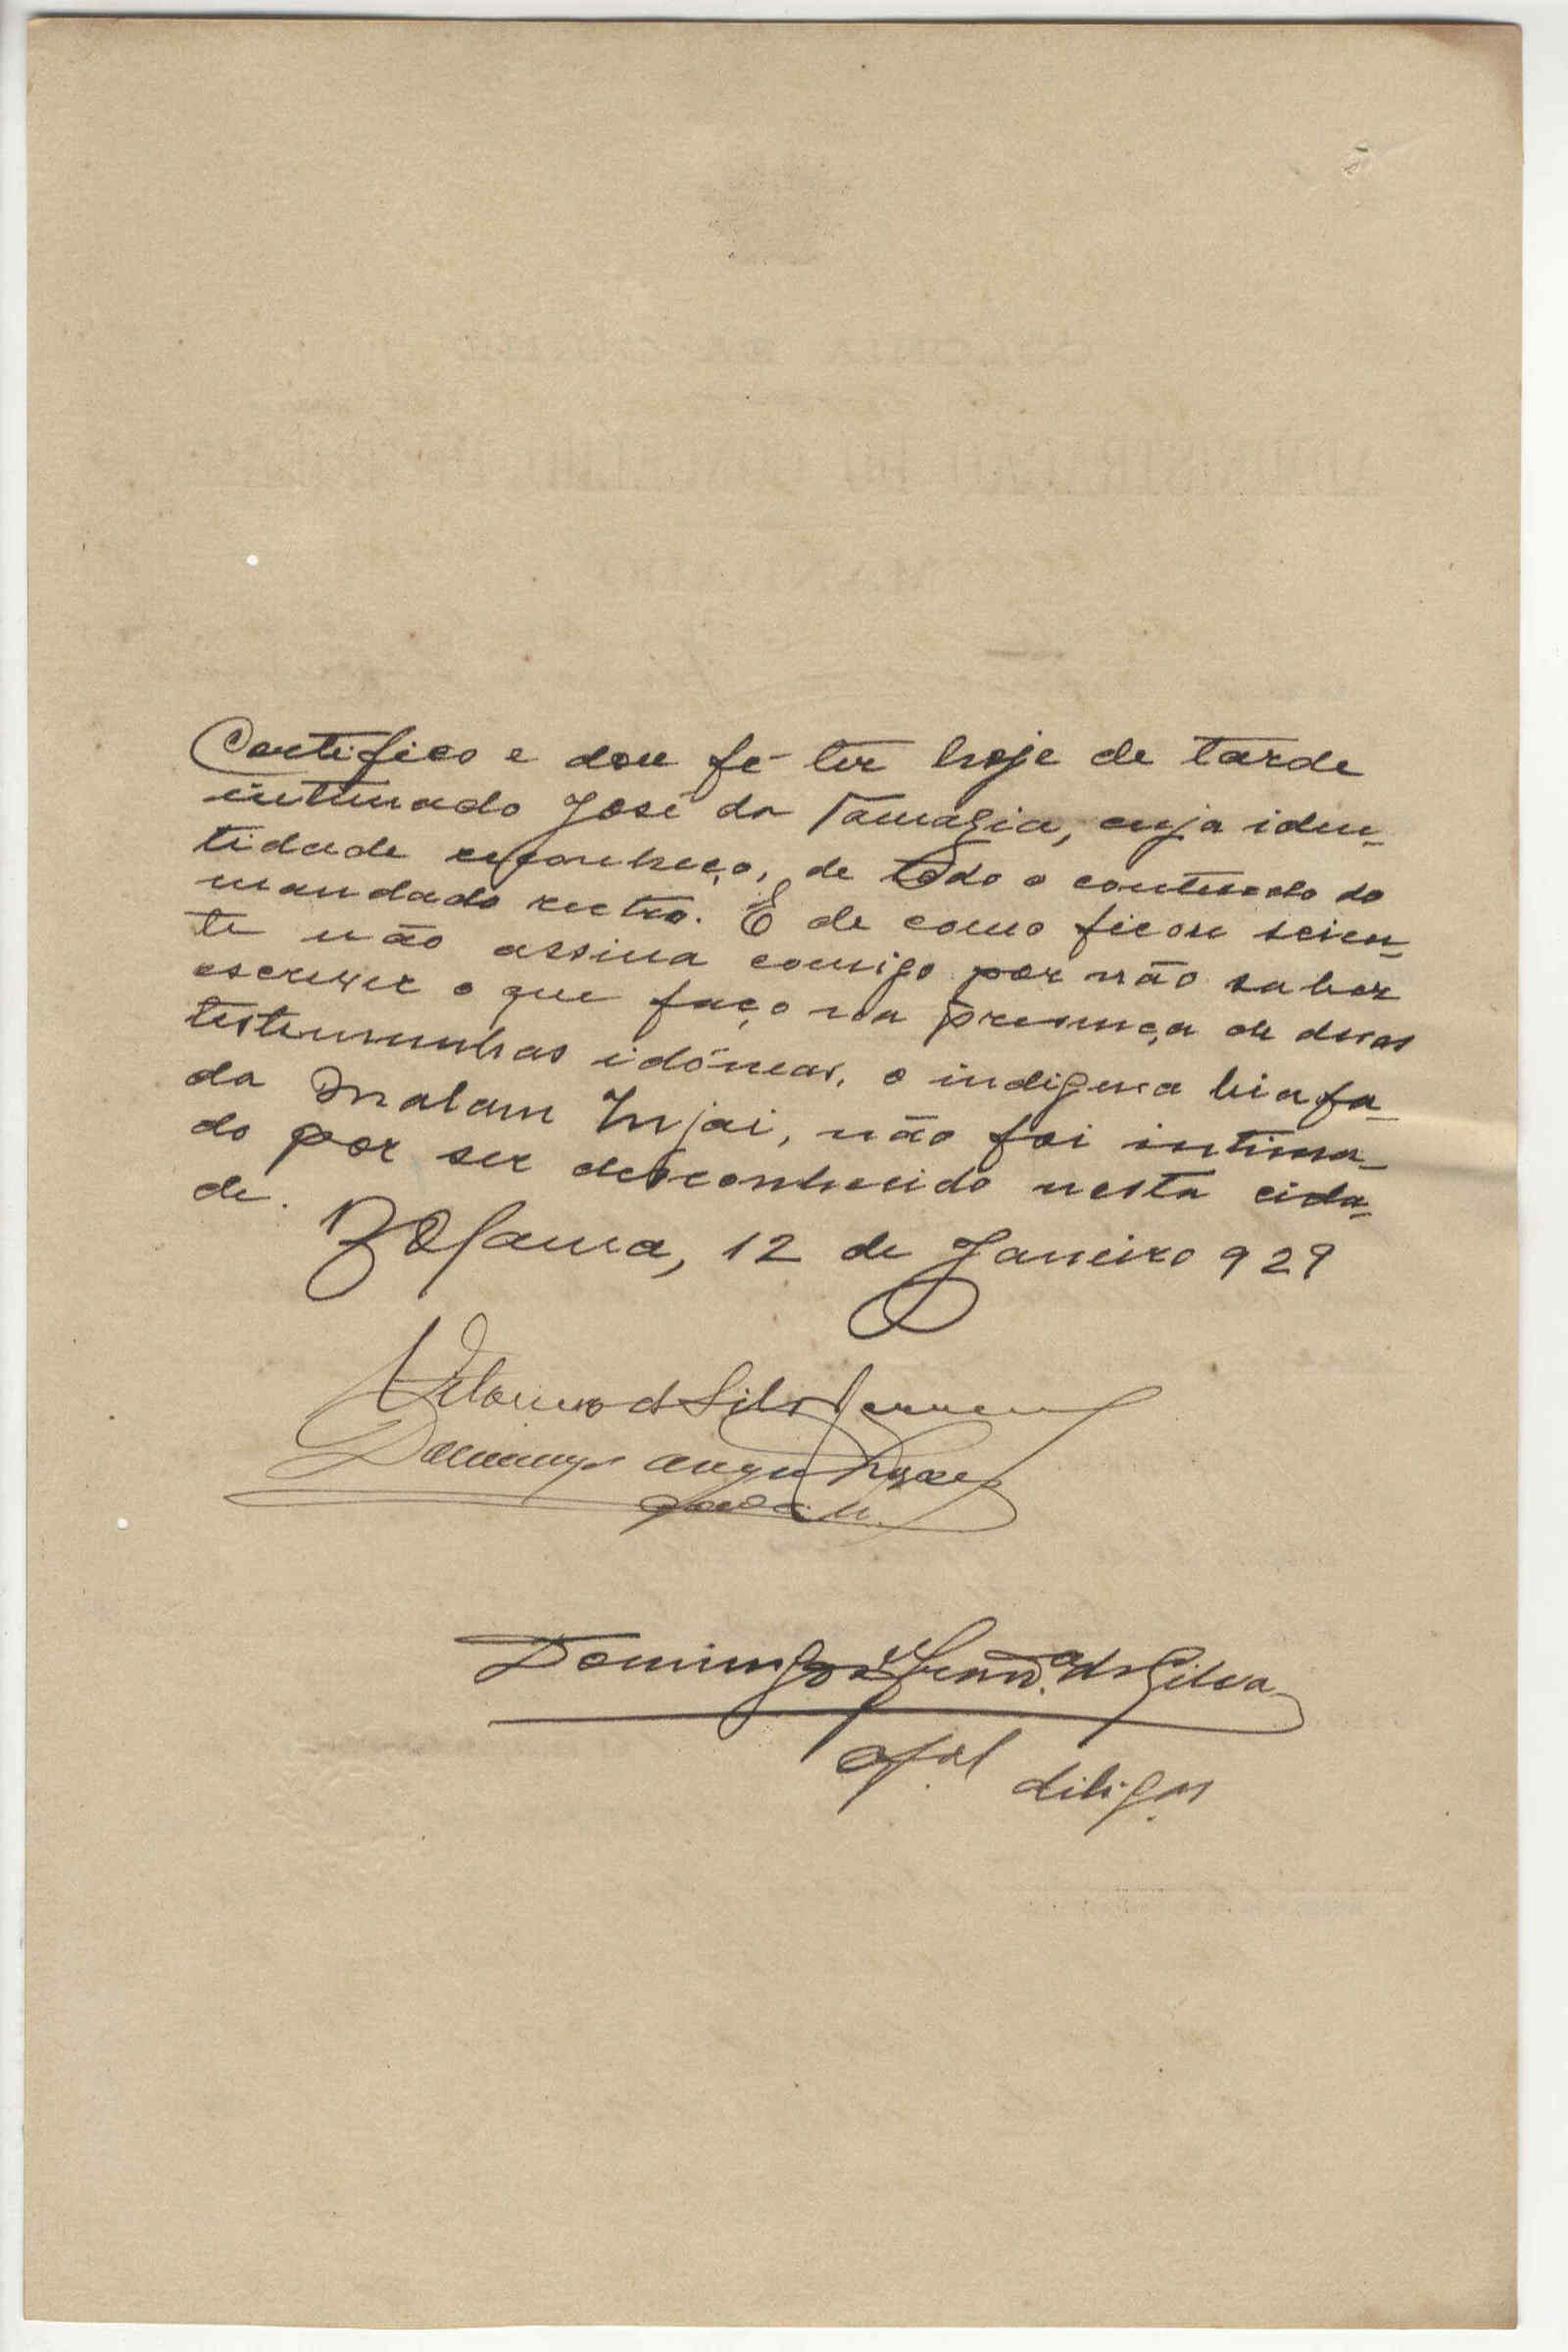 Certifico e dou fé ter hoje de tarde
intimado José da Famagia, cuja iden-
tidade reconheço, de todo o conteudo do
mandado rectro. E de como ficou scien-
te não assina comigo por não saber
escrever o que faço na presença de duas
testemunhas idóneas, o indigena biafa-
da Malam Injai, não foi intima-
do por ser desconhecido nesta cida-
de.
Bolama, 12 de Janeiro 929
da Silva
Domingos
Domingos da Silva
ofal diligas